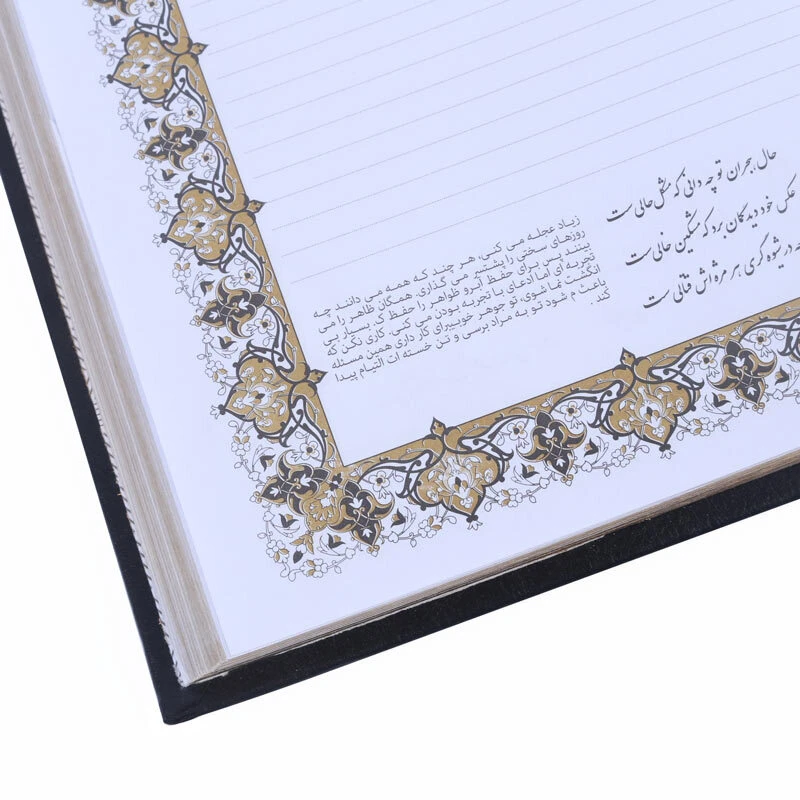 حال ہجران تو چه دانی که مشکل حالی ست
عکس خود دید گمان برد که مشکین خالی ست
در شیوه گری هر مژه اش قتالی ست
زیاد عجله می کنی، هر چند که همه می دانند چه
روزهای سختی را پشتسر می گذاری. همگان ظاهر را می
بینند پس برای حفظ آبرو ظواهر را حفظ ک. بسیار بی
تجربه ای اما ادعای با تجربه بودن می کنی. کاری نکن که
انگشت نما شوی، تو جوهر خوبیبرای کار داری همین مسئله
باعث م شود تو به مراد برسی و تن خسته ات التیام پیدا
کند .